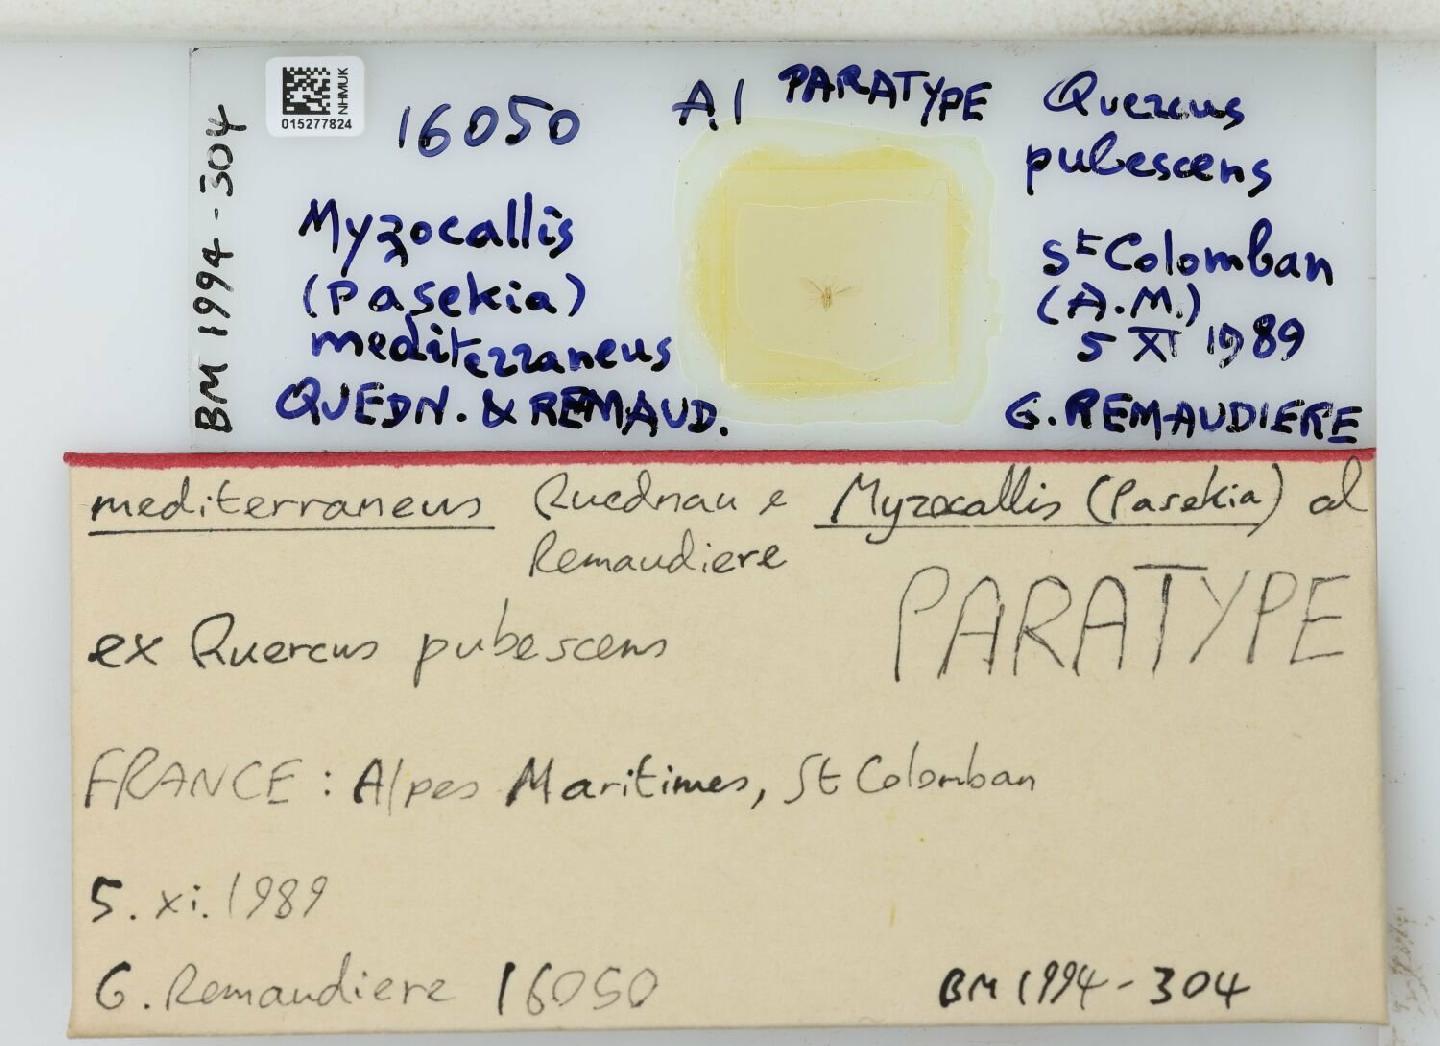 BM 1994-304
NHMUK
015277824
16050
A1
PARATYPE
Myzocallis
(Pasekia)
mediterraneus
QUEDN. & REMAUD.
Quercus
pubescens
St Colomban
(A.M.)
5 XI 1989
G. REMAUDIERE
mediterraneus Quednau & Myzocallis (Pasekia) al
Remaudiere
PARATYPE
ex Quercus pubescens
FRANCE: Alpes Maritimes, St Colomban
5. xi. 1989
G. Remaudiere 16050
BM 1994-304